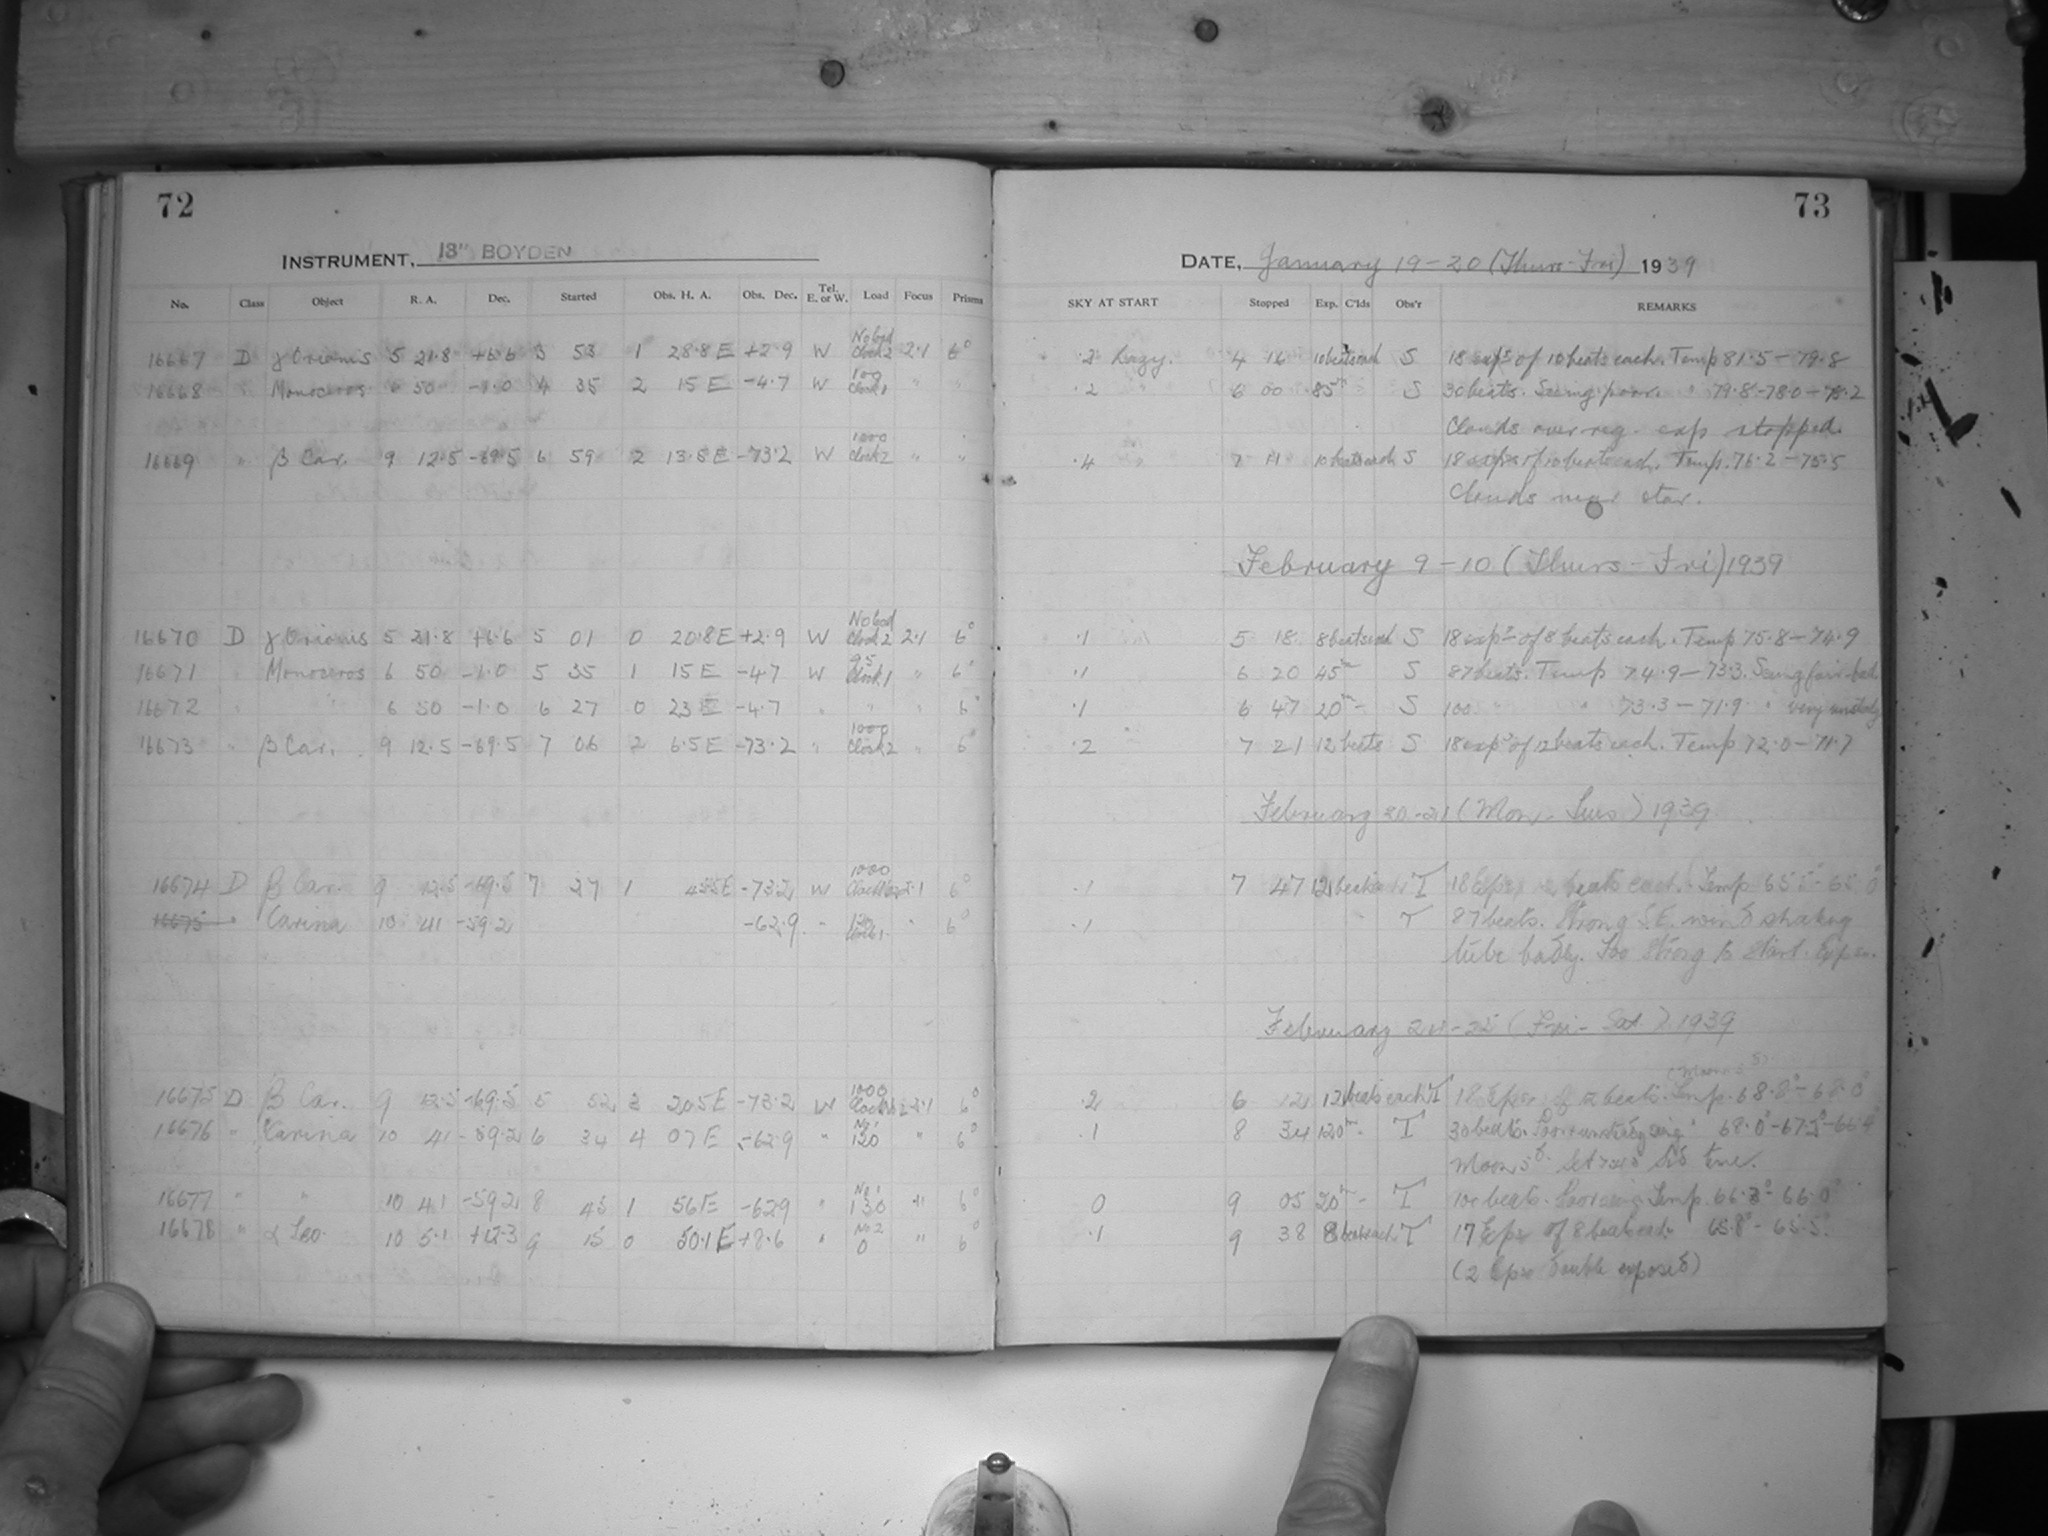 72
INSTRUMENT, 13" BOYDEN
No. Class Object R. A. Dec. Started Obs. H. A. Obs. Dec. Tel. E. or W. Load Focus Prisms
16667 D γ Orionis 5 21.8 +6.6 3 53 1 28.8 E +2.9 W No load Clock 2 2.1 6°
16668 " Monoceros 6 50 -1.0 4 35 2 15 E -4.7 W 100 Clock 1 " "
16669 " β Car. 9 12.5 -69.5 6 59 2 13.5 E -73.2 W 1000 Clock 2 " "
16670 D γ Orionis 5 21.8 +6.6 5 01 0 20.8 E +2.9 W No load Clock 2 2.1 6°
16671 " Monoceros 6 50 -1.0 5 35 1 15 E -4.7 W Clock 1 " 6°
16672 " " 6 50 -1.0 6 27 0 23 E -4.7 " " " 6°
16673 " β Car. 9 12.5 -69.5 7 06 2 6.5 E -73.2 " 1000 Clock 2 " 6°
16674 D β Car. 9 12.5 -69.5 7 27 1 45.5 E -73.2 W 1000 Clock 2 2.1 6°
16675 " Carina 10 41 -59.2 -62.9 " 6°
16675 D β Car. 9 12.5 -69.5 5 52 3 20.5 E -73.2 W 1000 2.1 6°
16676 " Carina 10 41 -59.2 6 34 4 07 E -62.9 " No 1 130 " 6°
16677 " " 10 41 -59.2 8 45 1 56 E -62.9 " No 1 130 " 6°
16678 " α Leo. 10 5.1 +12.3 9 15 0 50.1 E +8.6 " No 2 0 " 6°
73
DATE, January 19-20 (Thurs-Fri) 1939
SKY AT START Stopped Exp. C'lds Obs'r REMARKS
.2 Hazy. 4 16 10 beats each S 18 exps of 10 beats each. Temp 81.5 - 79.8
.2 " 6 00 85m S 30 beats. Seeing poor. " 79.8-78.0-76.2
Clouds over reg. exp stopped.
.4 " 7 11 10 beats each S 18 exps of 10 beats each. Temp. 76.2 - 75.5
Clouds near star.
February 9-10 (Thurs-Fri) 1939
.1 5 18 8 beats each S 18 exps of 8 beats each. Temp 75.8 - 74.9
.1 6 20 45m S 87 beats. Temp 74.9 - 73.3. Seeing fair-bad
.1 6 47 20m - S 100 " " 73.3 - 71.9 " very unsteady
.2 7 21 12 beats S 18 exps of 12 beats each. Temp 72.0 - 71.7
February 20-21 (Mon - Tues) 1939
.1 7 47 12 beats T 18 Exps 12 beats each. Temp
.1 T 87 beats. Strong S.E. wind shaking
tube badly. Too strong to start. Expn.
February 24-25 (Fri - Sat) 1939
.2 6 12 12 beats each T 18 Exps of 12 beats. Temp. 68.8° - 68.0°
.1 8 34 120m - T 30 beats. Poor unsteady seeing 68.0° - 67.3° - 66.4°
Moon Set Sid time.
0 9 05 20m - T 100 beats. Poor seeing. Temp. 66.3° - 66.0°
.1 9 38 8 beats each T 17 Exps of 8 beats each 65.8° - 65.5°
(2 Exps double exposed)